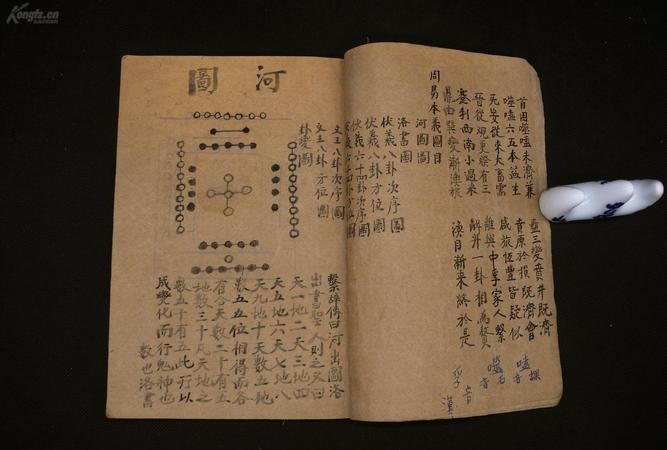 Kongfz.cn
首困噬嗑未濟兼
噬嗑六五本益生
无妄從來大畜需
晉從觀更睽有三
蹇利西南小過來
鼎由巽變漸渙旅
渙自漸來終於是
周易本義圖目
河圖圖
洛書圖
伏羲八卦次序圖
伏羲八卦方位圖
伏羲六十四卦次序圖
伏羲六十四卦方位圖
文王八卦次序圖
文王八卦方位圖
卦變圖
盍三變賁井既濟
賁原於損既濟會
咸旅恆豐皆疑似
離與中孚家人繫
解升一卦相為贅
嗑
音
噬
音
孚
音
河圖
繫辭傳曰河出圖洛
出書聖人則之又曰
天一地二天三地四
天五地六天七地八
天九地十天數五地
數五五位相得而各
有合天數二十有五
地數三十凡天地之
數五十有五此所以
成變化而行鬼神也
數也洛書